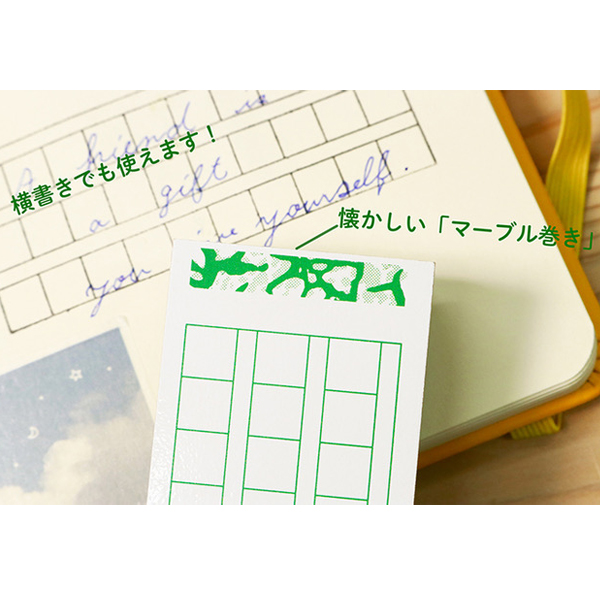 横書きでも使えます！
a friend is
a gift
you give yourself.
懐かしい「マーブル巻き」